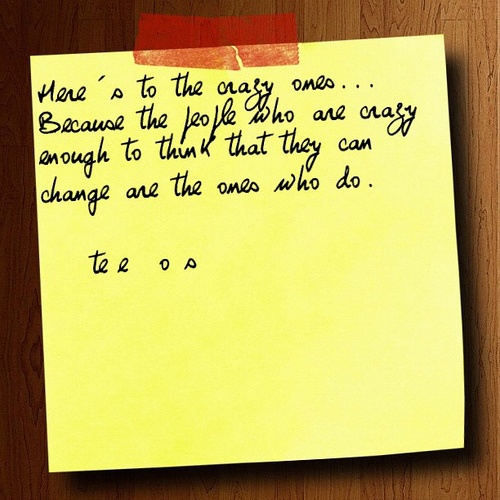 Here´s to the crazy ones...
Because the people who are crazy
enough to think that they can
change are the ones who do.
te e o s